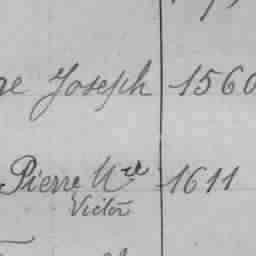 Joseph 1560
Pierre Mel 1611
Victor